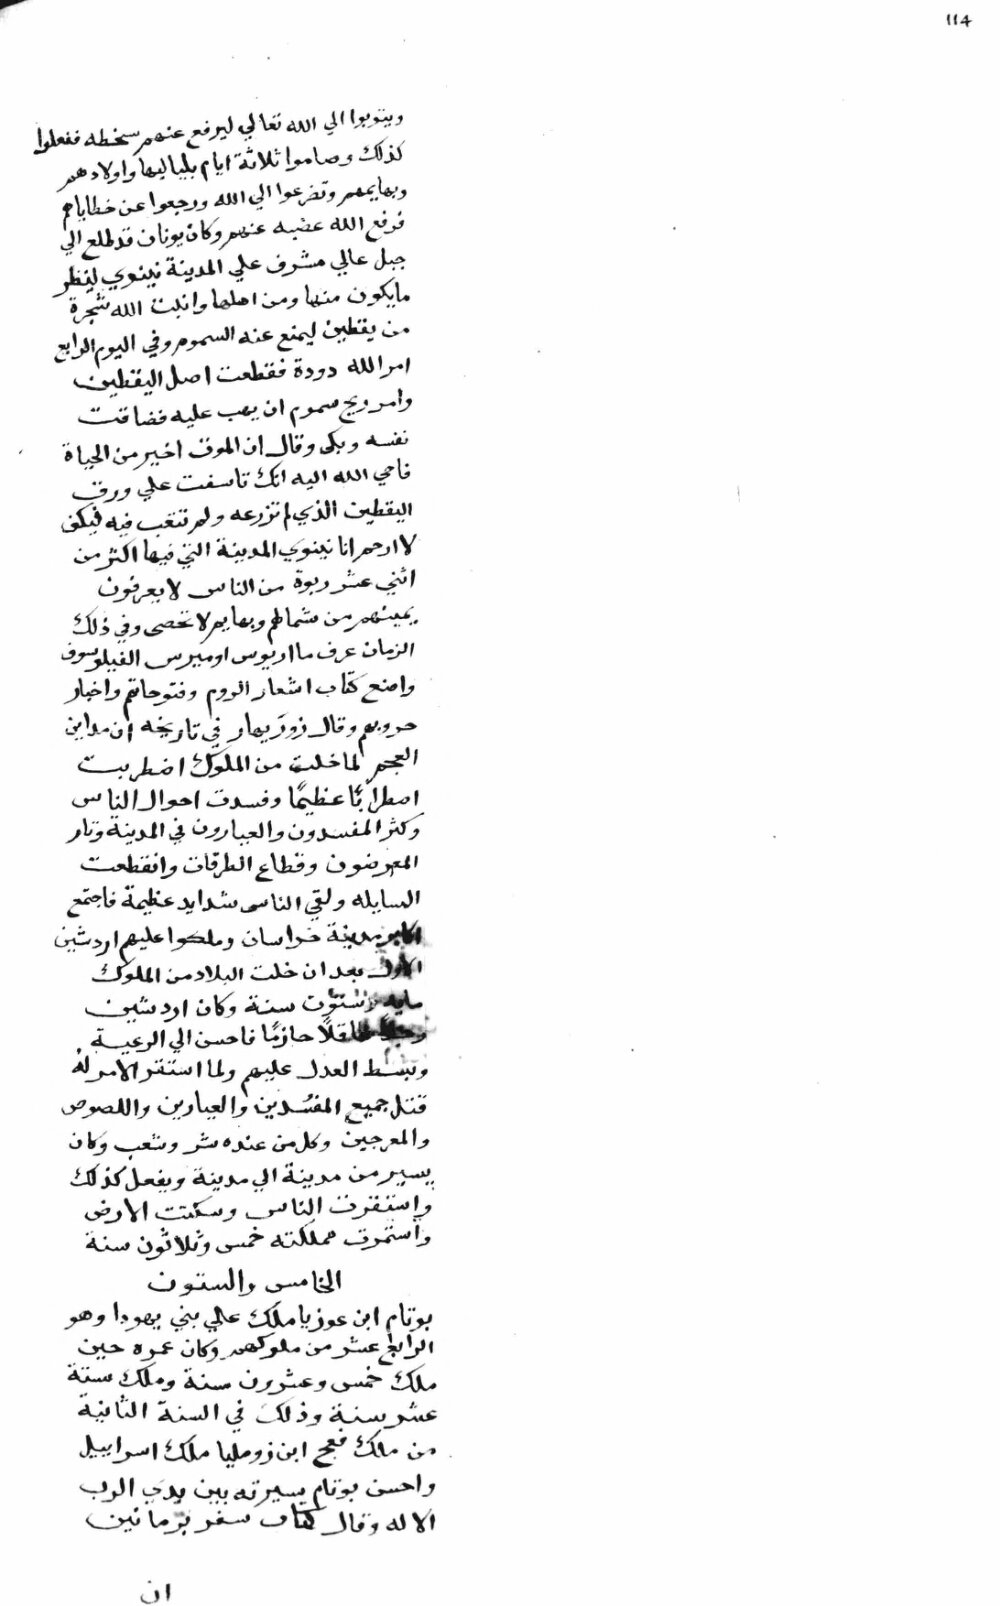 114
ويتوبوا الي الله تعالي ليرفع عنهم سخطه ففعلوا
كذلك وصاموا ثلاثة ايام بلياليها واولادهم
وبهايمهم وتضرعوا الي الله ورجعوا عن خطاياهم
فرفع الله غضبه عنهم وكان يونان قد طلع الي
جبل عالي مشرف علي المدينة نينوي لينظر
ما يكون منها ومن اهلها وانبت الله شجرة
من يقطين ليمنع عنه السموم وفي اليوم الرابع
امر الله دودة فقطعت اصل اليقطين
وامر ريح سموم ان يهب عليه فضاقت
نفسه وبكى وقال ان الموت اخير من الحياة
فاحي الله اليه انك تاسفت علي ورق
اليقطين الذي لم تزرعه ولم تتعب فيه فكيف
لا ارحم انا نينوي المدينة التي فيها اكثر من
اثني عشر ربوة من الناس لا يعرفون
يمينهم من شمالهم وبهايم لا تحصى وفي ذلك
الزمان عرف اوميرس الفيلوسوف
واضع كتاب اشعار الروم وفتوحاتهم واخبار
حروبهم وقال في تاريخه ان مداين
العجم لما خلت من الملوك اضطربت
اضطرابًا عظيمًا وفسدت احوال الناس
وكثر المفسدون والعيارون في المدينة وثار
المعرضون وقطاع الطرقات وانقطعت
السايله ولقي الناس شدايد عظيمة فاجتمع
اكابر مدينة خراسان وملكوا عليهم اردشين
الاول بعد ان خلت البلاد من الملوك
مايه وستون سنة وكان اردشين
رجلاً عاقلًا حازمًا فاحسن الي الرعية
وبسط العدل عليهم ولما استقر الامر له
قتل جميع المفسدين والعيارين واللصوص
والمعرجين وكل من عنده شر وشعب وكان
يسير من مدينة الي مدينة ويفعل كذلك
واستقرت الناس وسكنت الارض
واستمرت مملكته خمس وثلاثون سنة
الخامس والستون
يوتام ابن عوزيا ملك علي بني يهودا وهو
الرابع عشر من ملوكهم وكان عمره حين
ملك خمس وعشرون سنة وملك ستة
عشر سنة وذلك في السنة الثانية
من ملك فقح ابن روميليا ملك اسراييل
واحسن يوتام بسيرته بين يدي الرب
الاله وقال كتاب سفر
ان